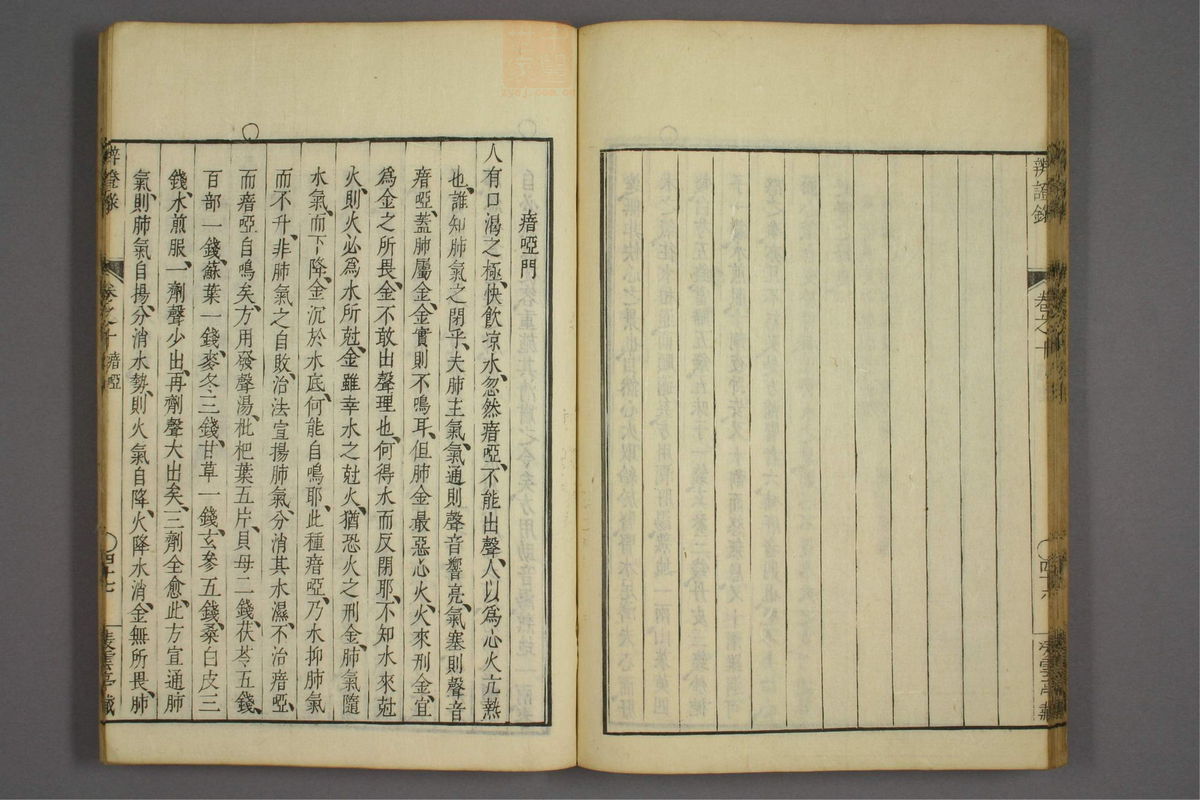 辨證錄
卷之十
瘖啞門
人有口渴之極、快飲凉水、忽然瘖啞、不能出聲、人以爲心火亢熱
也、誰知肺氣之閉乎、夫肺主氣、氣通則聲音響亮、氣塞則聲音
瘖啞、蓋肺屬金、金實則不鳴耳、但肺金最惡心火、火來刑金、宜
爲金之所畏、金不敢出聲理也、何得水而反閉耶、不知水來尅
火、則火必爲水所尅、金雖幸水之尅火、猶恐火之刑金、肺氣隨
水氣、而下降、金沉於水底、何能自鳴耶、此種瘖啞、乃水抑肺氣
而不升、非肺氣之自敗、治法宣揚肺氣、分消其水濕、不治瘖啞、
而瘖啞自鳴矣、方用發聲湯、枇杷葉五片、貝母二錢、茯苓五錢、
百部一錢、蘇葉一錢、麥冬三錢、甘草一錢、玄參五錢、桑白皮三
錢、水煎服、一劑聲少出、再劑聲大出矣、三劑全愈、此方宣通肺
氣、則肺氣自揚、分消水勢、則火氣自降、火降水消、金無所畏、肺
辨證錄
卷之十
瘖啞
四十七